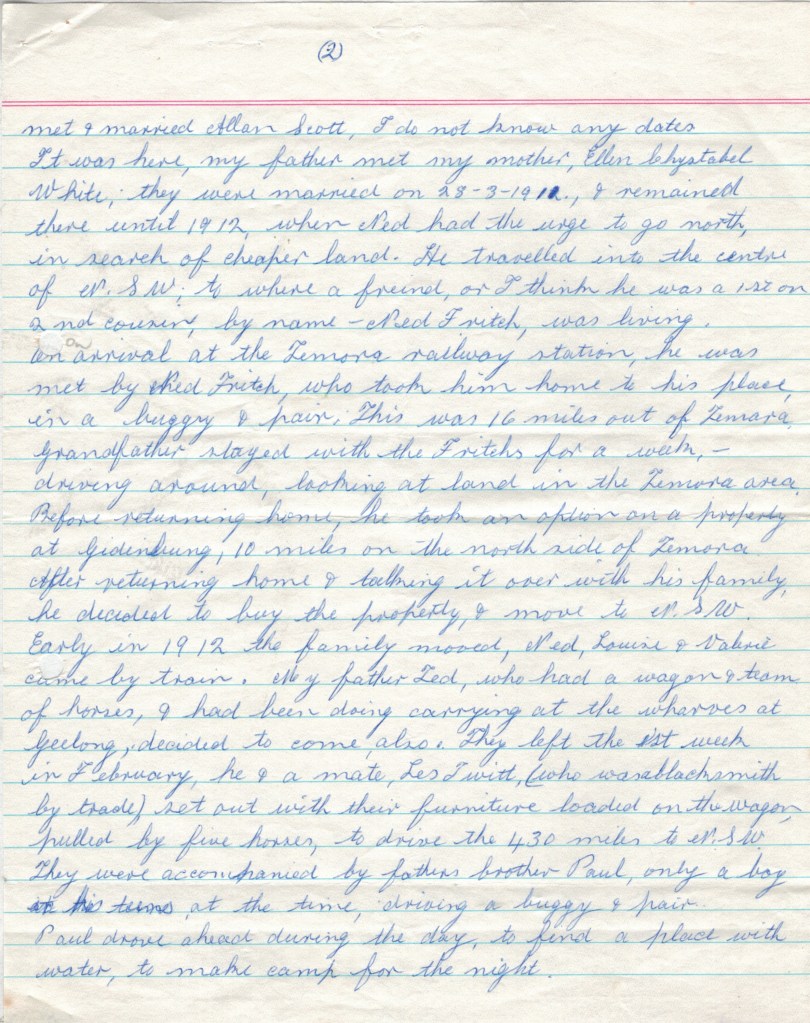 (2)
met & married Allan Scott, I do not know any dates
It was here, my father met my mother, Ellen Chystabel
White, they were married on 28-3-1911., & remained
there until 1912, when Ned had the urge to go north,
in search of cheaper land. He travelled into the centre
of N.S.W; to where a freind, or I think he was a 1st or
2nd cousin, by name – Ned Fritch, was living.
On arrival at the Temora railway station, he was
met by Ned Fritch, who took him home to his place,
in a buggy & pair. This was 16 miles out of Temora,
Grandfather stayed with the Fritchs for a week, –
driving around, looking at land in the Temora area.
Before returning home, he took an option on a property
at Gidginbung, 10 miles on the north side of Temora.
After returning home & talking it over with his family,
he decided to buy the property, & move to N.S.W.
Early in 1912 the family moved, Ned, Louise & Valerie
came by train. My father Ted, who had a wagon & team
of horses, & had been doing carrying at the wharves at
Geelong, decided to come, also. They left the 1st week
in February, he & a mate, Les Twitt, (who was a blacksmith
by trade) set out with their furniture loaded on the wagon,
pulled by five horses, to drive the 430 miles to N.S.W.
They were accompanied by fathers brother Paul, only a boy
at the time, driving a buggy & pair.
Paul drove ahead during the day, to find a place with
water, to make camp for the night.